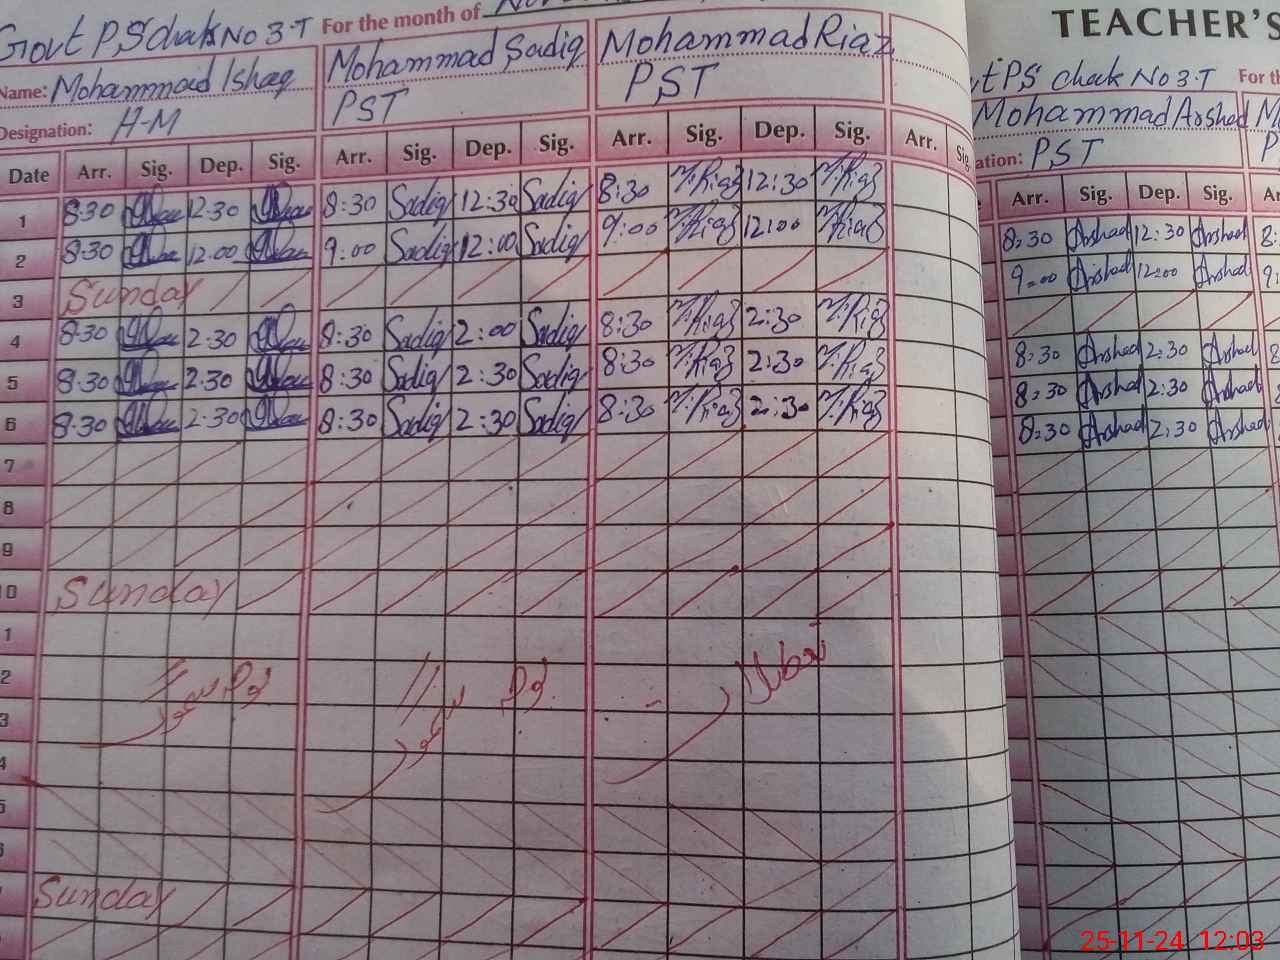 Govt P,S chak No 3-T For the month of
TEACHER'S
Name: Mohammad Ishaq Mohammad Sadiq Mohammad Riaz
Designation: H-M PST PST
PS chak No 3-T For th
Mohammad Arshad
ation: PST
Date Arr. Sig. Dep. Sig. Arr. Sig. Dep. Sig. Arr. Sig. Dep. Sig. Arr. Sig
Arr. Sig. Dep. Sig. Arr.
1 8-30 12-30 8:30 Sadiq 12:30 Sadiq 8:30 M.Riaz 12:30 M.Riaz
8:30 Arshad 12:30 Arshad 8:
2 8-30 12.00 9:00 Sadiq 12:00 Sadiq 9:00 M.Riaz 12:00 M.Riaz
9:00 Arshad 12:00 Arshad 9
3 Sunday
4 8-30 2-30 8:30 Sadiq 2:00 Sadiq 8:30 M.Riaz 2:30 M.Riaz
8:30 Arshad 2:30 Arshad
5 8-30 2-30 8:30 Sadiq 2:30 Sadiq 8:30 M.Riaz 2:30 M.Riaz
8:30 Arshad 2:30 Arshad
6 8-30 2-30 8:30 Sadiq 2:30 Sadiq 8:30 M.Riaz 2:30 M.Riaz
8:30 Arshad 2:30 Arshad
7
8
9
0 Sunday
1
2
3
4
5
6
Sunday
25-11-24 12:03